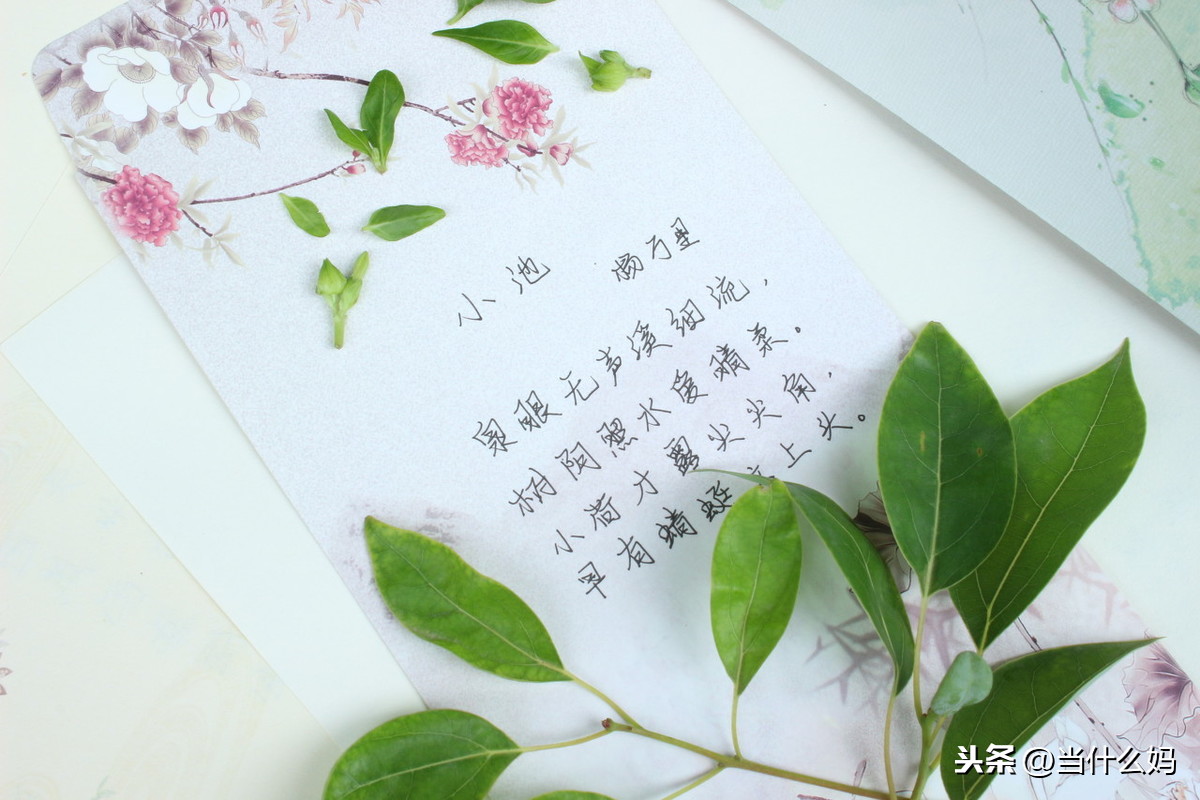 小池 杨万里
泉眼无声溪细流，
树阴照水爱晴柔。
小荷才露尖尖角，
早有蜻蜓上头。
头条 @当什么妈